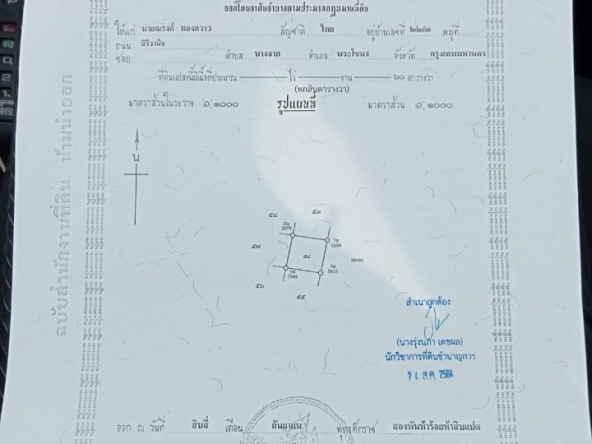 ออกโดยอาศัยอำนาจตามประมวลกฎหมายที่ดิน
ให้แก่ นายณรงค์ ทองดาว สัญชาติ ไทย อยู่บ้านเลขที่ ๒๒๓ หมู่ที่
ถนน สิริวานิช
ซอย ตำบล บางจาก อำเภอ พระโขนง จังหวัด กรุงเทพมหานคร
ที่ดินแปลงนี้มีเนื้อที่ประมาณ ไร่ งาน ๖๐ ตารางวา
(หกสิบตารางวา)
มาตราส่วนในระวาง ๑:๑๐๐๐ รูปแผนที่ มาตราส่วน ๑:๑๐๐๐
น
ฉบับสำนักงานที่ดิน ห้ามนำออก
๕๘ ๕๓
๕๗ ๕๔
๕๖ ๕๕
สำเนาถูกต้อง
(นางรุ่งนภา เดชผล)
นักวิชาการที่ดินชำนาญการ
ส.ค. 2564
ออก ณ วันที่ สิบสี่ เดือน กันยายน พุทธศักราช สองพันห้าร้อยห้าสิบแปด